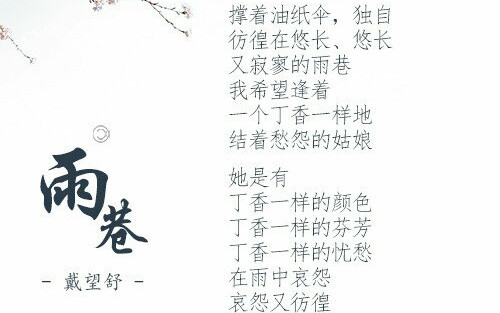 撑着油纸伞，独自
彷徨在悠长、悠长
又寂寥的雨巷
我希望逢着
一个丁香一样地
结着愁怨的姑娘
她是有
丁香一样的颜色
丁香一样的芬芳
丁香一样的忧愁
在雨中哀怨
哀怨又彷徨
雨巷
- 戴望舒 -